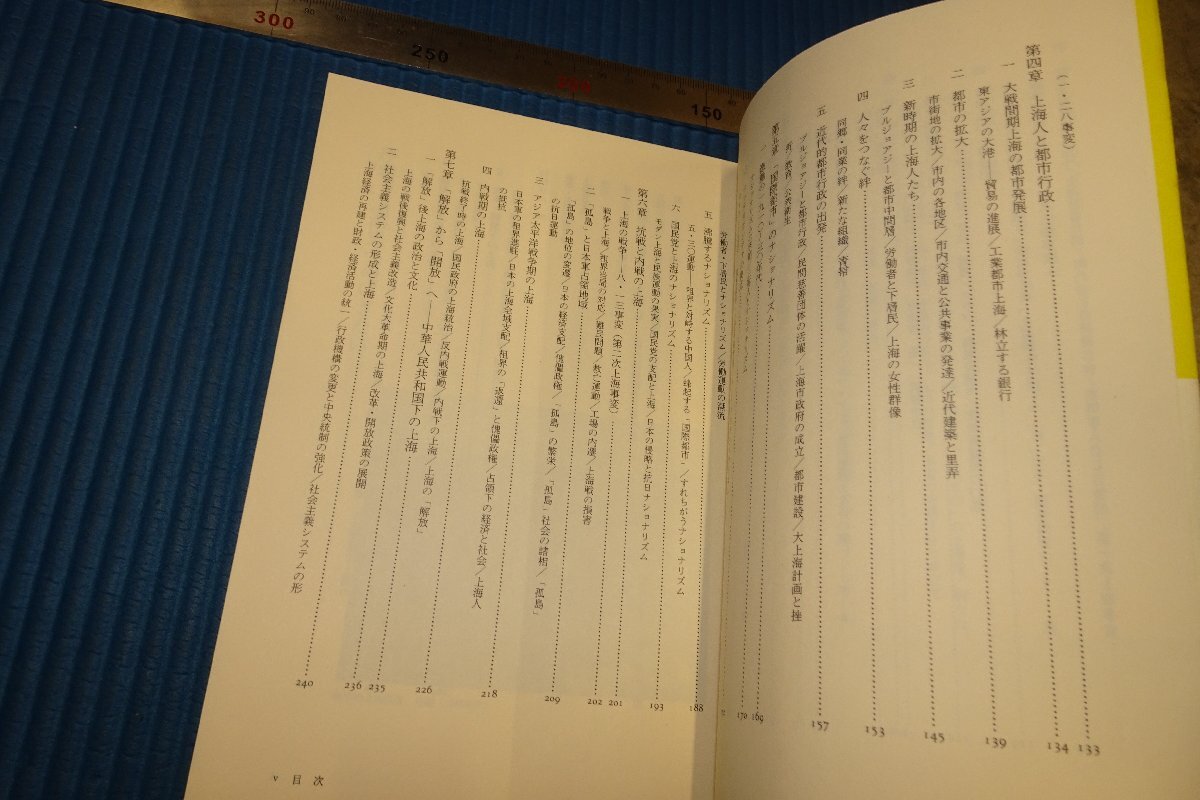 (一・二八事変)
第四章 上海人と都市行政 133
一 大戦間期上海の都市発展 134
東アジアの大港――貿易の進展/工業都市上海/林立する銀行
二 都市の拡大 139
市街地の拡大/市内の各地区/市内交通と公共事業の発達/近代建築と里弄
三 新時期の上海人たち 145
ブルジョアジーと都市中間層/労働者と下層民/上海の女性群像
四 人々をつなぐ絆 153
同郷・同業の絆/新たな組織/青幇
五 近代的都市行政の出発 157
ブルジョアジーと都市行政/民間慈善団体の活躍/上海市政府の成立/都市建設/大上海計画と挫
第五章 「国際都市」のナショナリズム 169
170
労働者・下層民とナショナリズム/労働運動の源流
五 沸騰するナショナリズム 188
五・三〇運動――租界と対峙する中国人/様起する「国際都市」/すれちがうナショナリズム
六 国民党と上海のナショナリズム 193
モダン上海と民族運動の果実/国民党の支配と上海/日本の侵略と抗日ナショナリズム
第六章 抗戦と内戦の上海 201
一 上海の戦争――八・一三事変(第二次上海事変) 202
戦争と上海/租界当局の対応/難民問題/救亡運動/工場の内遷/上海戦の損害
二 「孤島」と日本軍占領地域 209
「孤島」の地位の変遷/日本の経済支配/傀儡政権/「孤島」の繁栄/「孤島」社会の諸相/「孤島」
の抗日運動
三 アジア太平洋戦争期の上海 218
日本軍の租界進駐/日本の上海全域支配/租界の「返還」と傀儡政権/占領下の経済と社会/上海人
の抵抗
四 内戦期の上海 226
抗戦終了時の上海/国民政府の上海統治/反内戦運動/内戦下の上海/上海の「解放」
第七章 「解放」から「開放」へ――中華人民共和国下の上海 235
一 「解放」後上海の政治と文化 236
上海の戦後復興と社会主義改造/文化大革命期の上海/改革・開放政策の展開
二 社会主義システムの形成と上海 240
上海経済の再建と財政・経済活動の統一/行政機構の変更と中央統制の強化/社会主義システムの形
v 目次
300
250
150